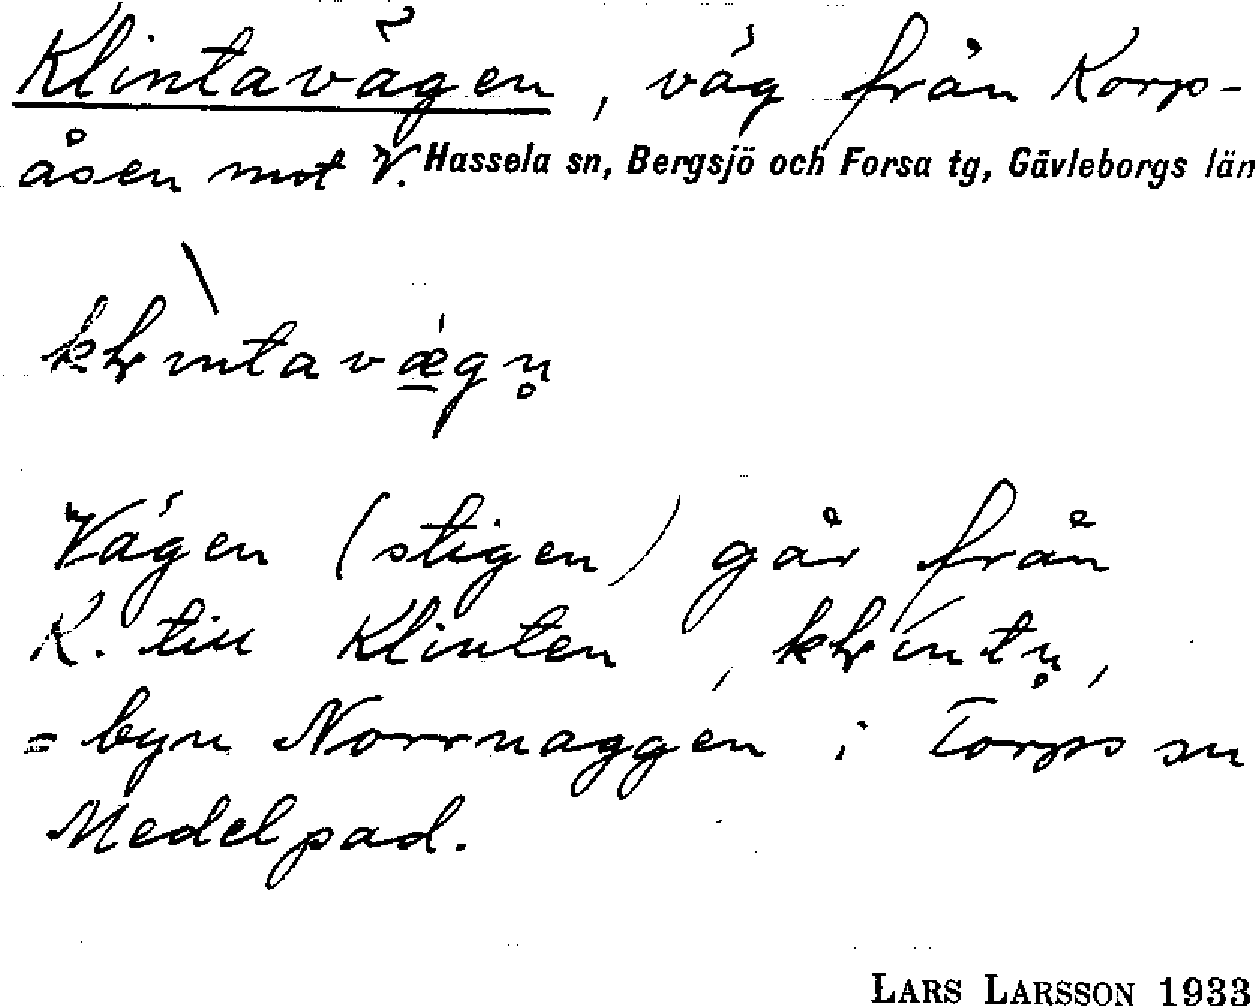 Klintavägen, väg från Korp-
åsen mot V. Hassela sn, Bergsjö och Forsa tg, Gävleborgs län
Vägen (stigen) går från
K. till Klinten,
= byn Norrnaggen i Torps sn
Medelpad.
LARS LARSSON 1933